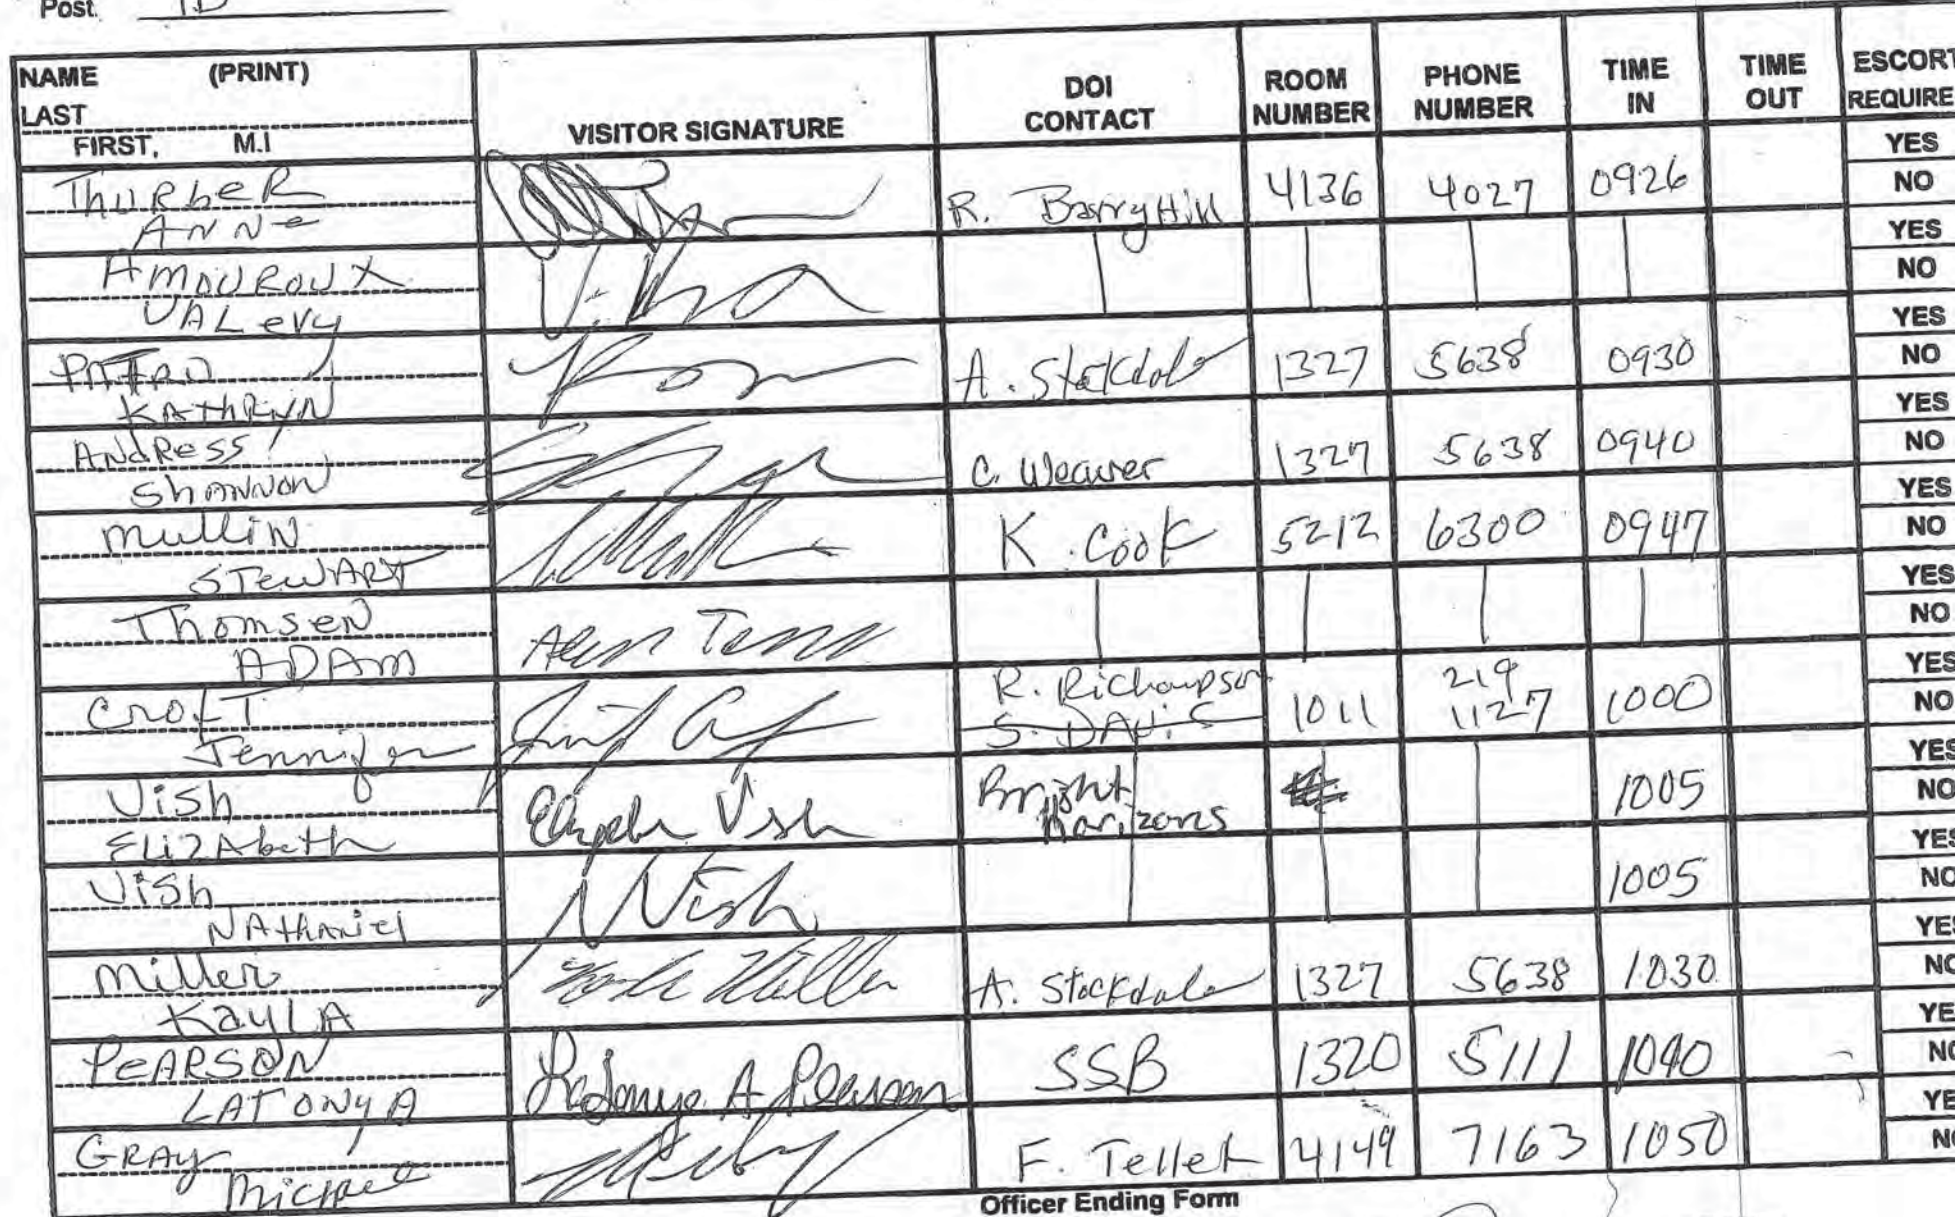 Post. 1D
NAME (PRINT)
LAST
FIRST, M.I
VISITOR SIGNATURE
DOI
CONTACT
ROOM
NUMBER
PHONE
NUMBER
TIME
IN
TIME
OUT
ESCORT
REQUIRE
ThURbeR
ANNe
R. BarryHill 4136 4027 0926
YES
NO
AMOUROUX
VALevy
YES
NO
KAThRYN
A. Stockdale 1327 5638 0930
YES
NO
AndRess
ShANNON
C. Weaver 1327 5638 0940
YES
NO
mulliN
STewART
K. Cook 5212 6300 0947
YES
NO
ThomseN
ADAm
YES
NO
CrofT
Jennifer
R. Richardson
S. DAviS
1011
219
1127
1000
YES
NO
Vish
ELIZAbeth
Elizabeth Vish
Bright
Horizons
1005
YES
NO
Vish
NAthaniel
N Vish
1005
YES
NO
Miller
KayLA
Kayla Miller
A. Stockdale 1327 5638 1030
YES
NO
PeARSON
LATONyA
LaTonya A Pearson
SSB 1320 5111 1040
YE
NO
GRAy
F. Teller 4149 7163 1050
YE
NO
Officer Ending Form